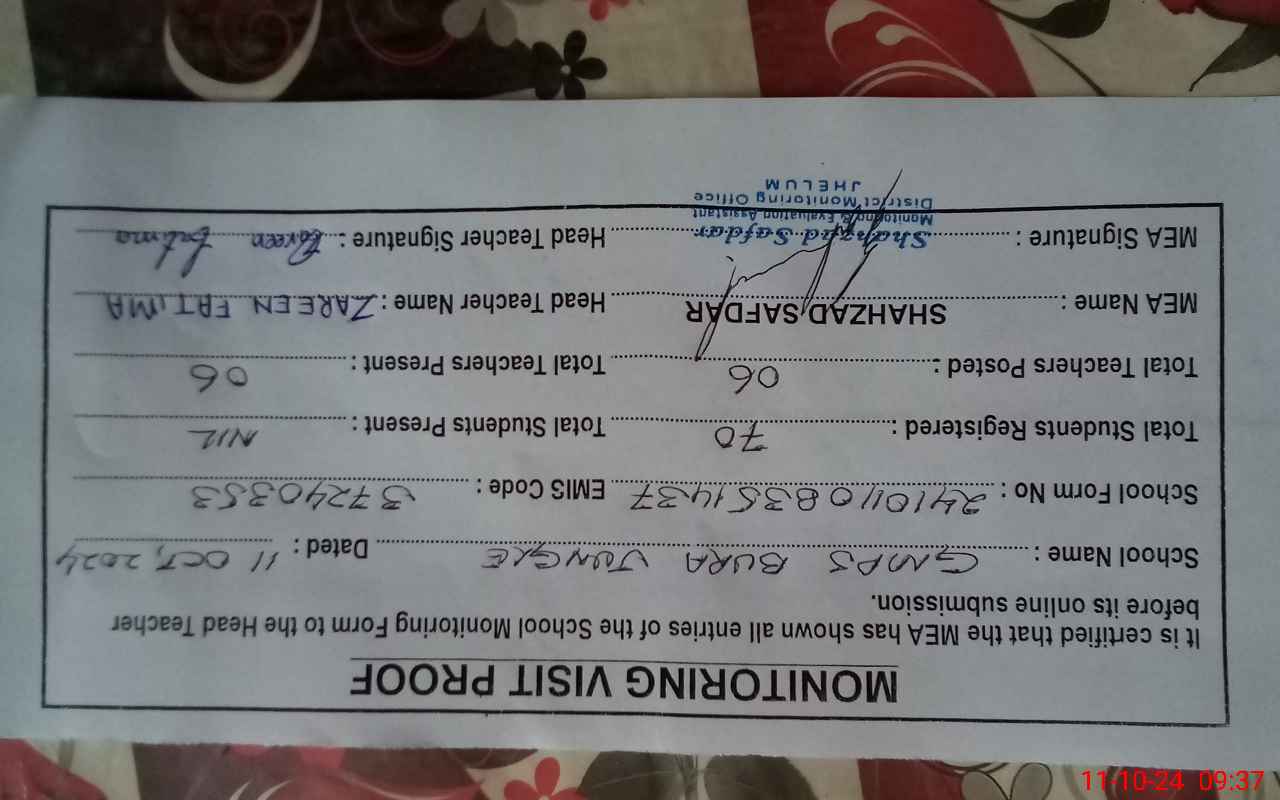 MONITORING VISIT PROOF
It is certified that the MEA has shown all entries of the School Monitoring Form to the Head Teacher
before its online submission.
School Name : GMPS BURA JUNGLE Dated : 11 OCT, 2024
School Form No : 24101108351437 EMIS Code : 37240353
Total Students Registered : 70 Total Students Present : NIL
Total Teachers Posted : 06 Total Teachers Present : 06
MEA Name : SHAHZAD SAFDAR Head Teacher Name : ZAREEN FATIMA
MEA Signature : Shahzad Safdar Head Teacher Signature : Zareen Fatima
Monitoring & Evaluation Assistant
District Monitoring Office
JHELUM
11-10-24 09:37